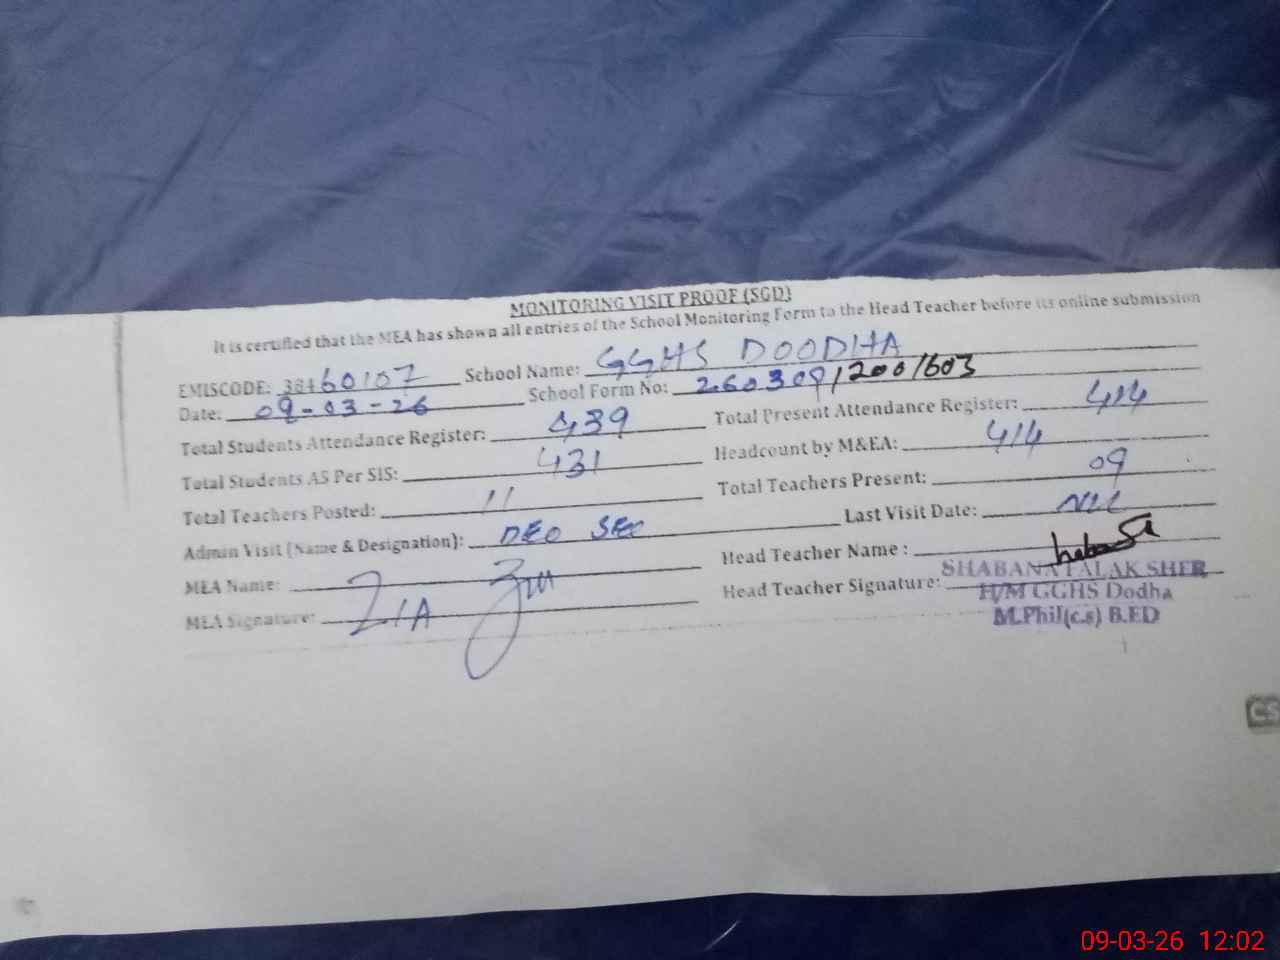 MONITORING VISIT PROOF (SGD)
It is certified that the MEA has shown all entries of the School Monitoring Form to the Head Teacher before its online submission
EMISCODE: 38460107 School Name: GGHS DOODHA
Date: 09-03-26 School Form No: 260309/2001603
Total Students Attendance Register: 439 Total Present Attendance Register: 414
Total Students AS Per SIS: 431 Headcount by M&EA: 414
Total Teachers Posted: 11 Total Teachers Present: 09
Admin Visit (Name & Designation): DEO SEC Last Visit Date: NIL
MEA Name: Head Teacher Name :
MEA Signature: ZIA Head Teacher Signature:
SHABANA FALAK SHER
H/M GGHS Dodha
M.Phil(c.s) B.ED
CS
09-03-26 12:02